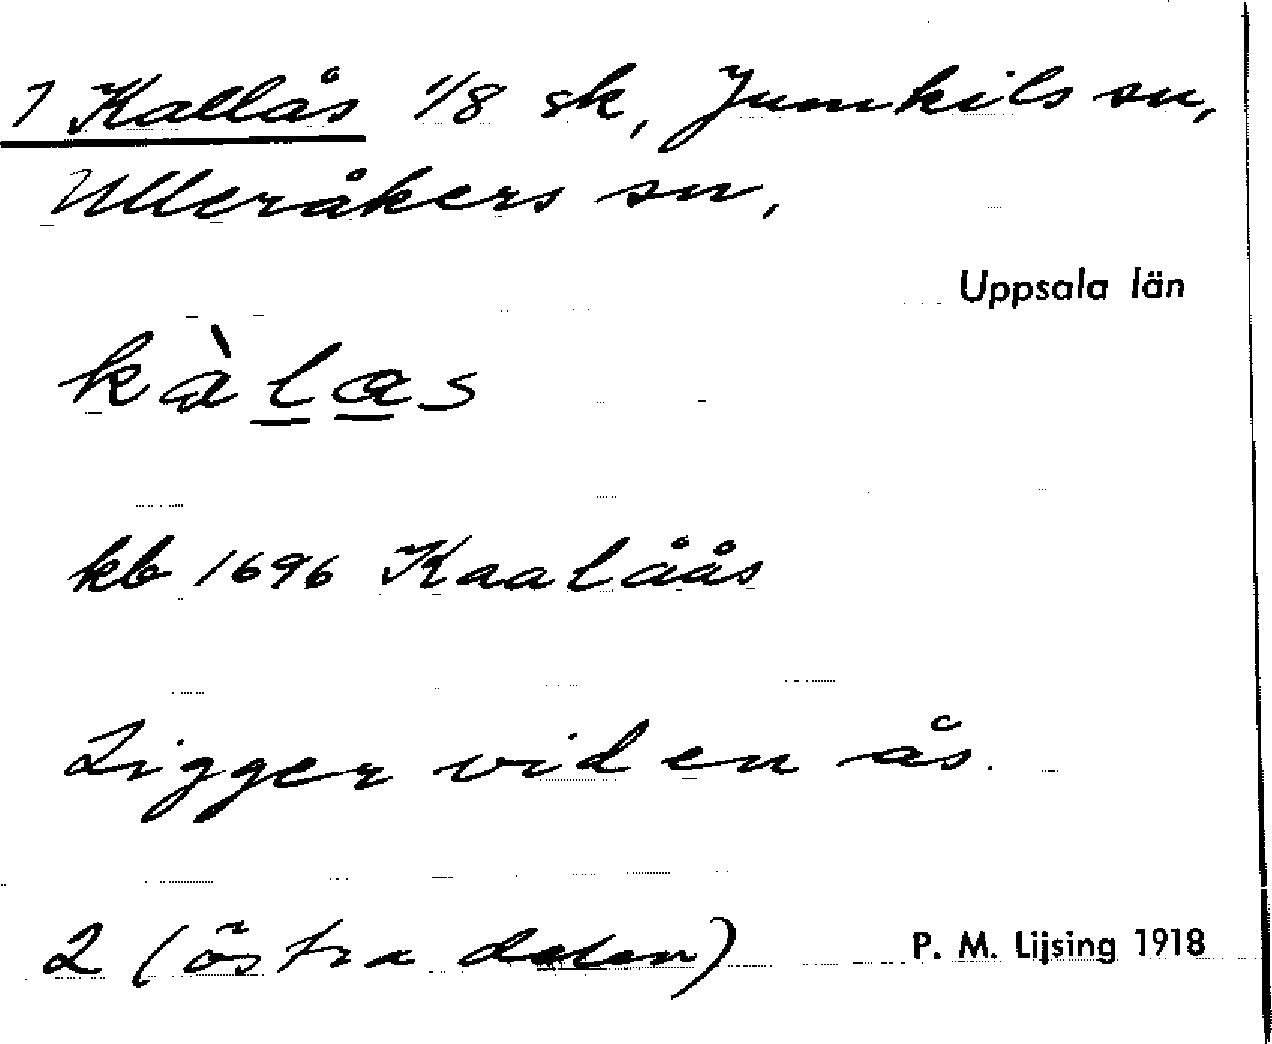 1 Kallås 1/8 sk, Jumkils sn,
Ulleråkers sn,
Uppsala län
kàlas
kb 1696 Kaalåås
Ligger vid en ås.
2 (östra delen) P. M. Lijsing 1918